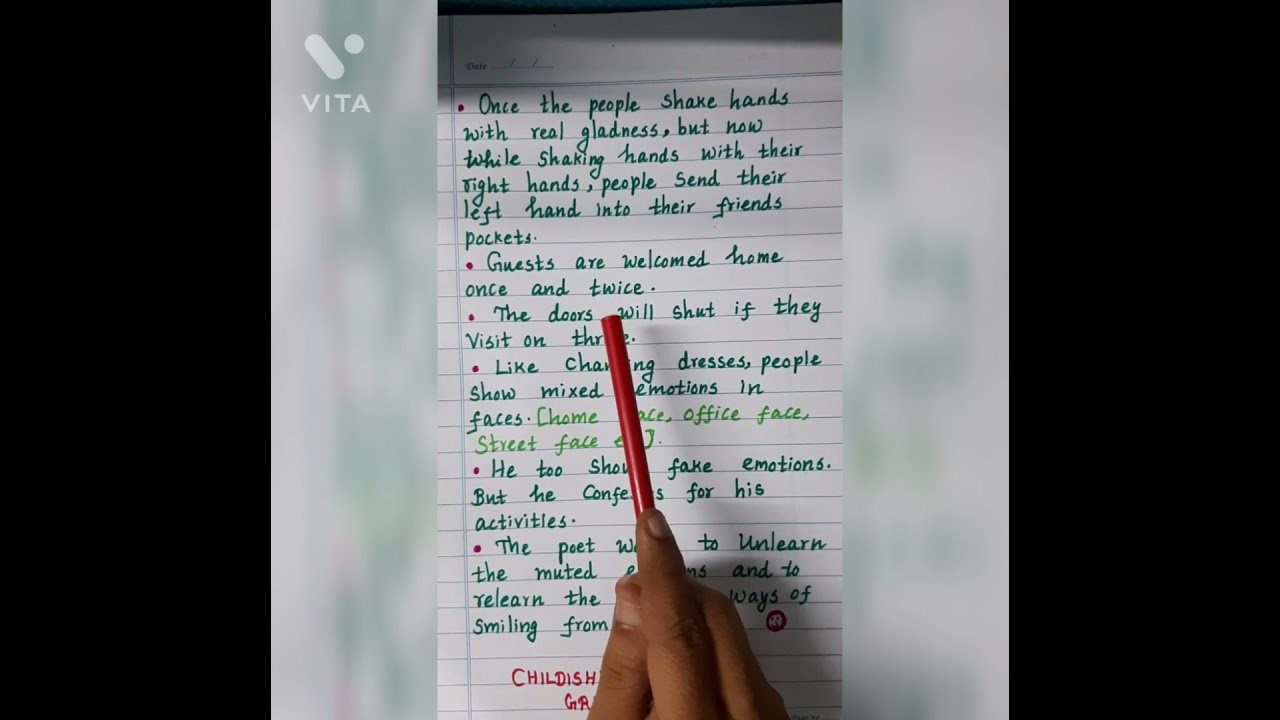 VITA
Date __/__/__
• Once the people shake hands
with real gladness, but now
while shaking hands with their
right hands, people send their
left hand into their friends
pockets.
• Guests are welcomed home
once and twice.
• The doors will shut if they
Visit on
• Like dresses, people
show mixed emotions in
faces. [home office face,
Street face
• He too fake emotions.
But he for his
activities.
• The poet to Unlearn
the muted and to
relearn the ways of
Smiling from
CHILDISH